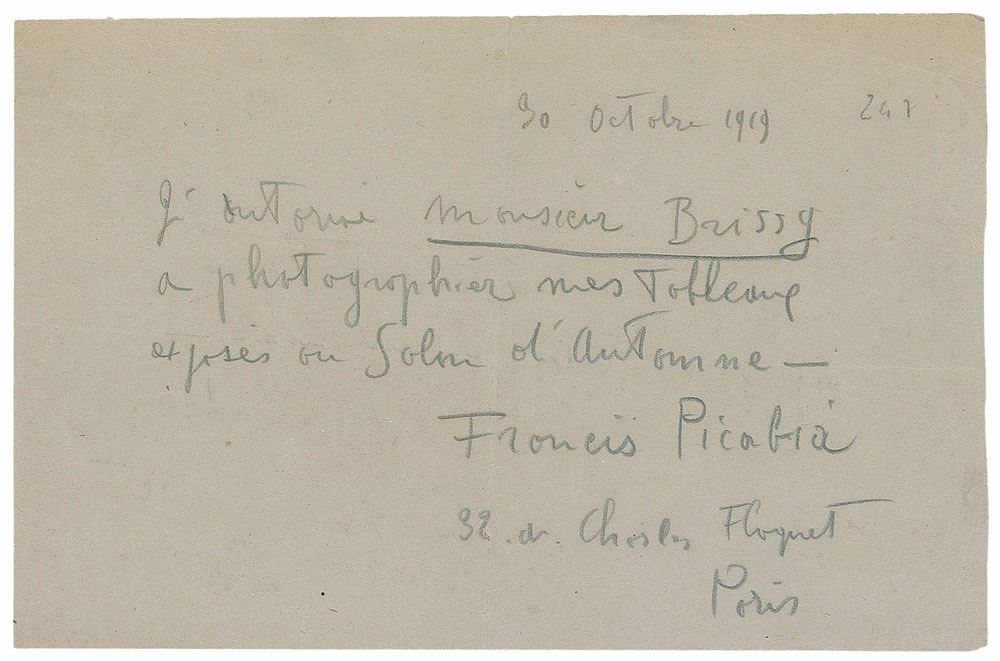 30 Octobre 1919 247
J'autorise Monsieur Brissy
a photographier mes Tableaux
exposés au Salon d'Automne —
Francis Picabia
32. Av. Charles Floquet
Paris